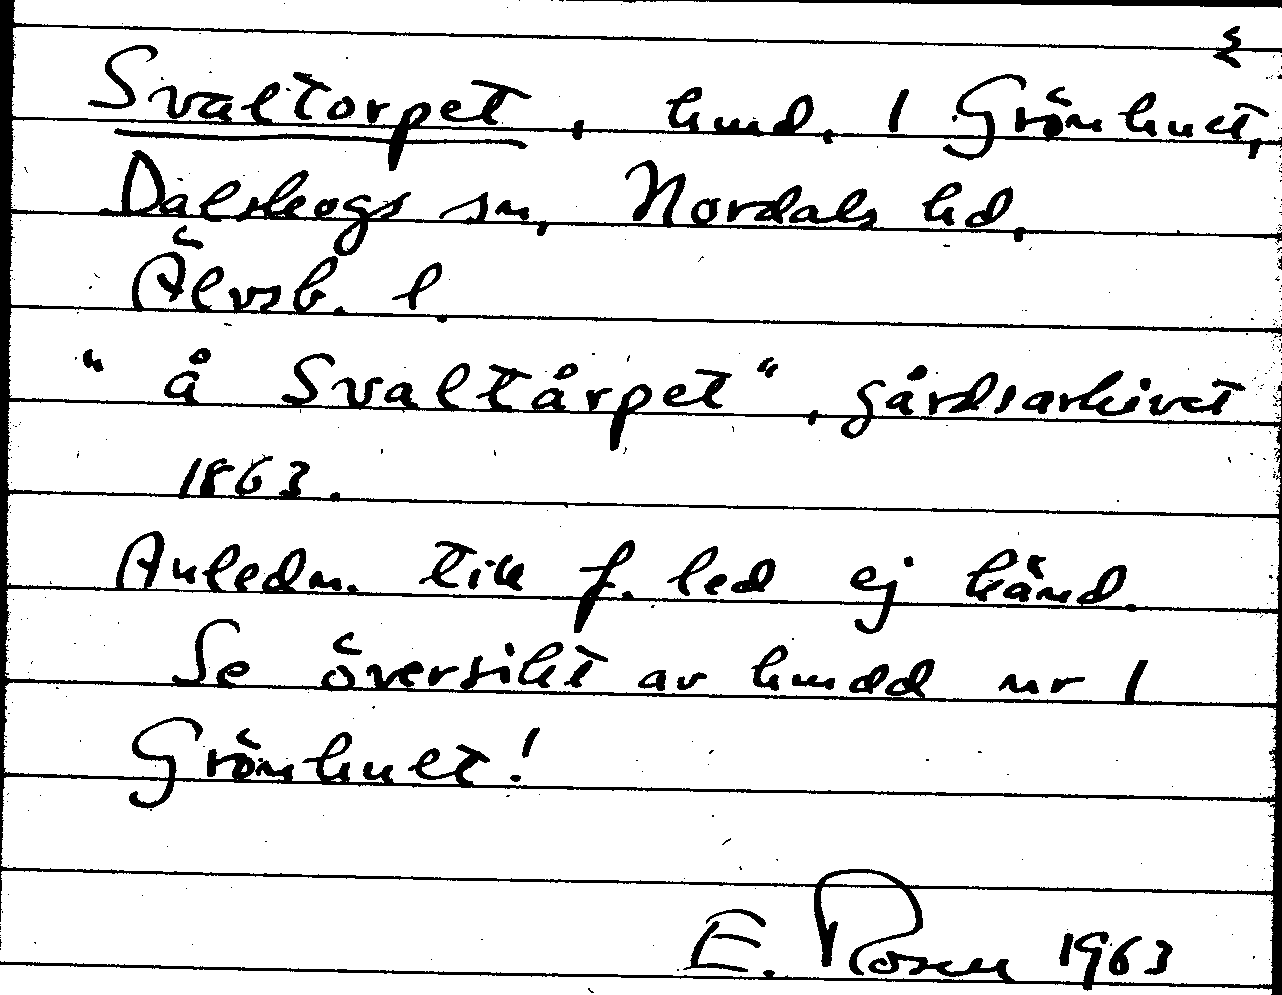 Svaltorpet, hmd. 1 Grönhult,
Dalskogs sn, Nordals hd,
Älvsb. l.
"å Svaltårpet", gårdsarkivet
1863.
Anledn. till f. led ej känd.
Se översikt av hmdd nr 1
Grönhult!
E. Rosen 1963